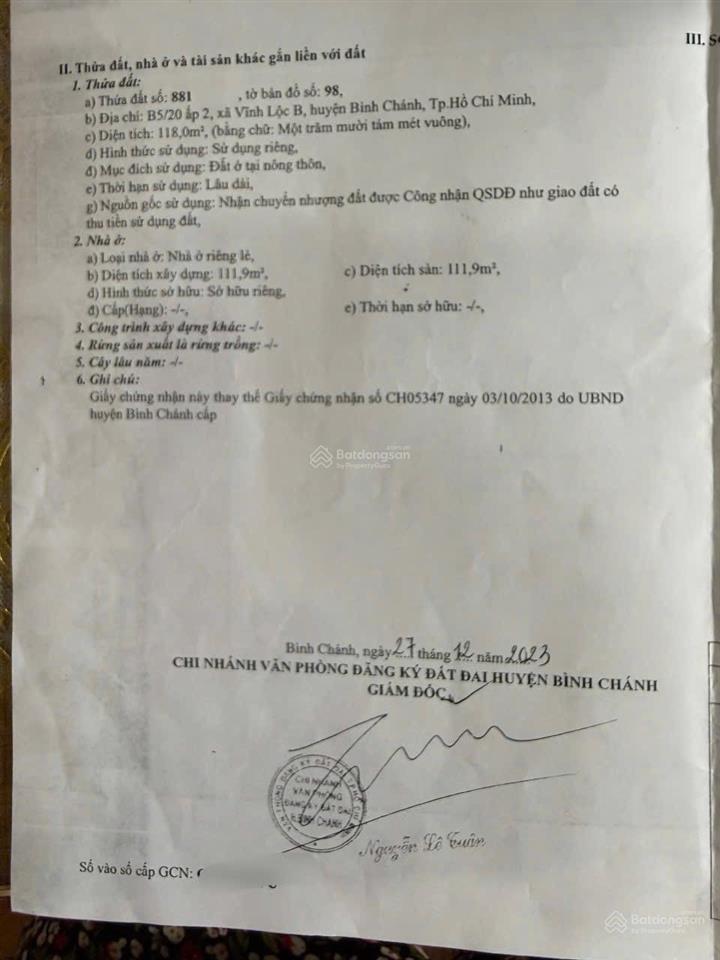 III. S
II. Thửa đất, nhà ở và tài sản khác gắn liền với đất
1. Thửa đất:
a) Thửa đất số: 881 , tờ bản đồ số: 98,
b) Địa chỉ: B5/20 ấp 2, xã Vĩnh Lộc B, huyện Bình Chánh, Tp.Hồ Chí Minh,
c) Diện tích: 118,0m², (bằng chữ: Một trăm mười tám mét vuông),
d) Hình thức sử dụng: Sử dụng riêng,
đ) Mục đích sử dụng: Đất ở tại nông thôn,
e) Thời hạn sử dụng: Lâu dài,
g) Nguồn gốc sử dụng: Nhận chuyển nhượng đất được Công nhận QSDĐ như giao đất có
thu tiền sử dụng đất,
2. Nhà ở:
a) Loại nhà ở: Nhà ở riêng lẻ,
b) Diện tích xây dựng: 111,9m², c) Diện tích sàn: 111,9m²,
d) Hình thức sở hữu: Sở hữu riêng,
đ) Cấp(Hạng): -/-, e) Thời hạn sở hữu: -/-,
3. Công trình xây dựng khác: -/-
4. Rừng sản xuất là rừng trồng: -/-
5. Cây lâu năm: -/-
6. Ghi chú:
Giấy chứng nhận này thay thế Giấy chứng nhận số CH05347 ngày 03/10/2013 do UBND
huyện Bình Chánh cấp
Batdongsan
by PropertyGuru
Bình Chánh, ngày 27 tháng 12 năm 2023
CHI NHÁNH VĂN PHÒNG ĐĂNG KÝ ĐẤT ĐAI HUYỆN BÌNH CHÁNH
GIÁM ĐỐC
VĂN PHÒNG ĐĂNG KÝ ĐẤT ĐAI T.P HỒ CHÍ MINH
CHI NHÁNH
VĂN PHÒNG
ĐĂNG KÝ ĐẤT ĐAI
H.BÌNH CHÁNH
Nguyễn Lê Tuân
Số vào sổ cấp GCN:
Batdongsan
by PropertyGuru